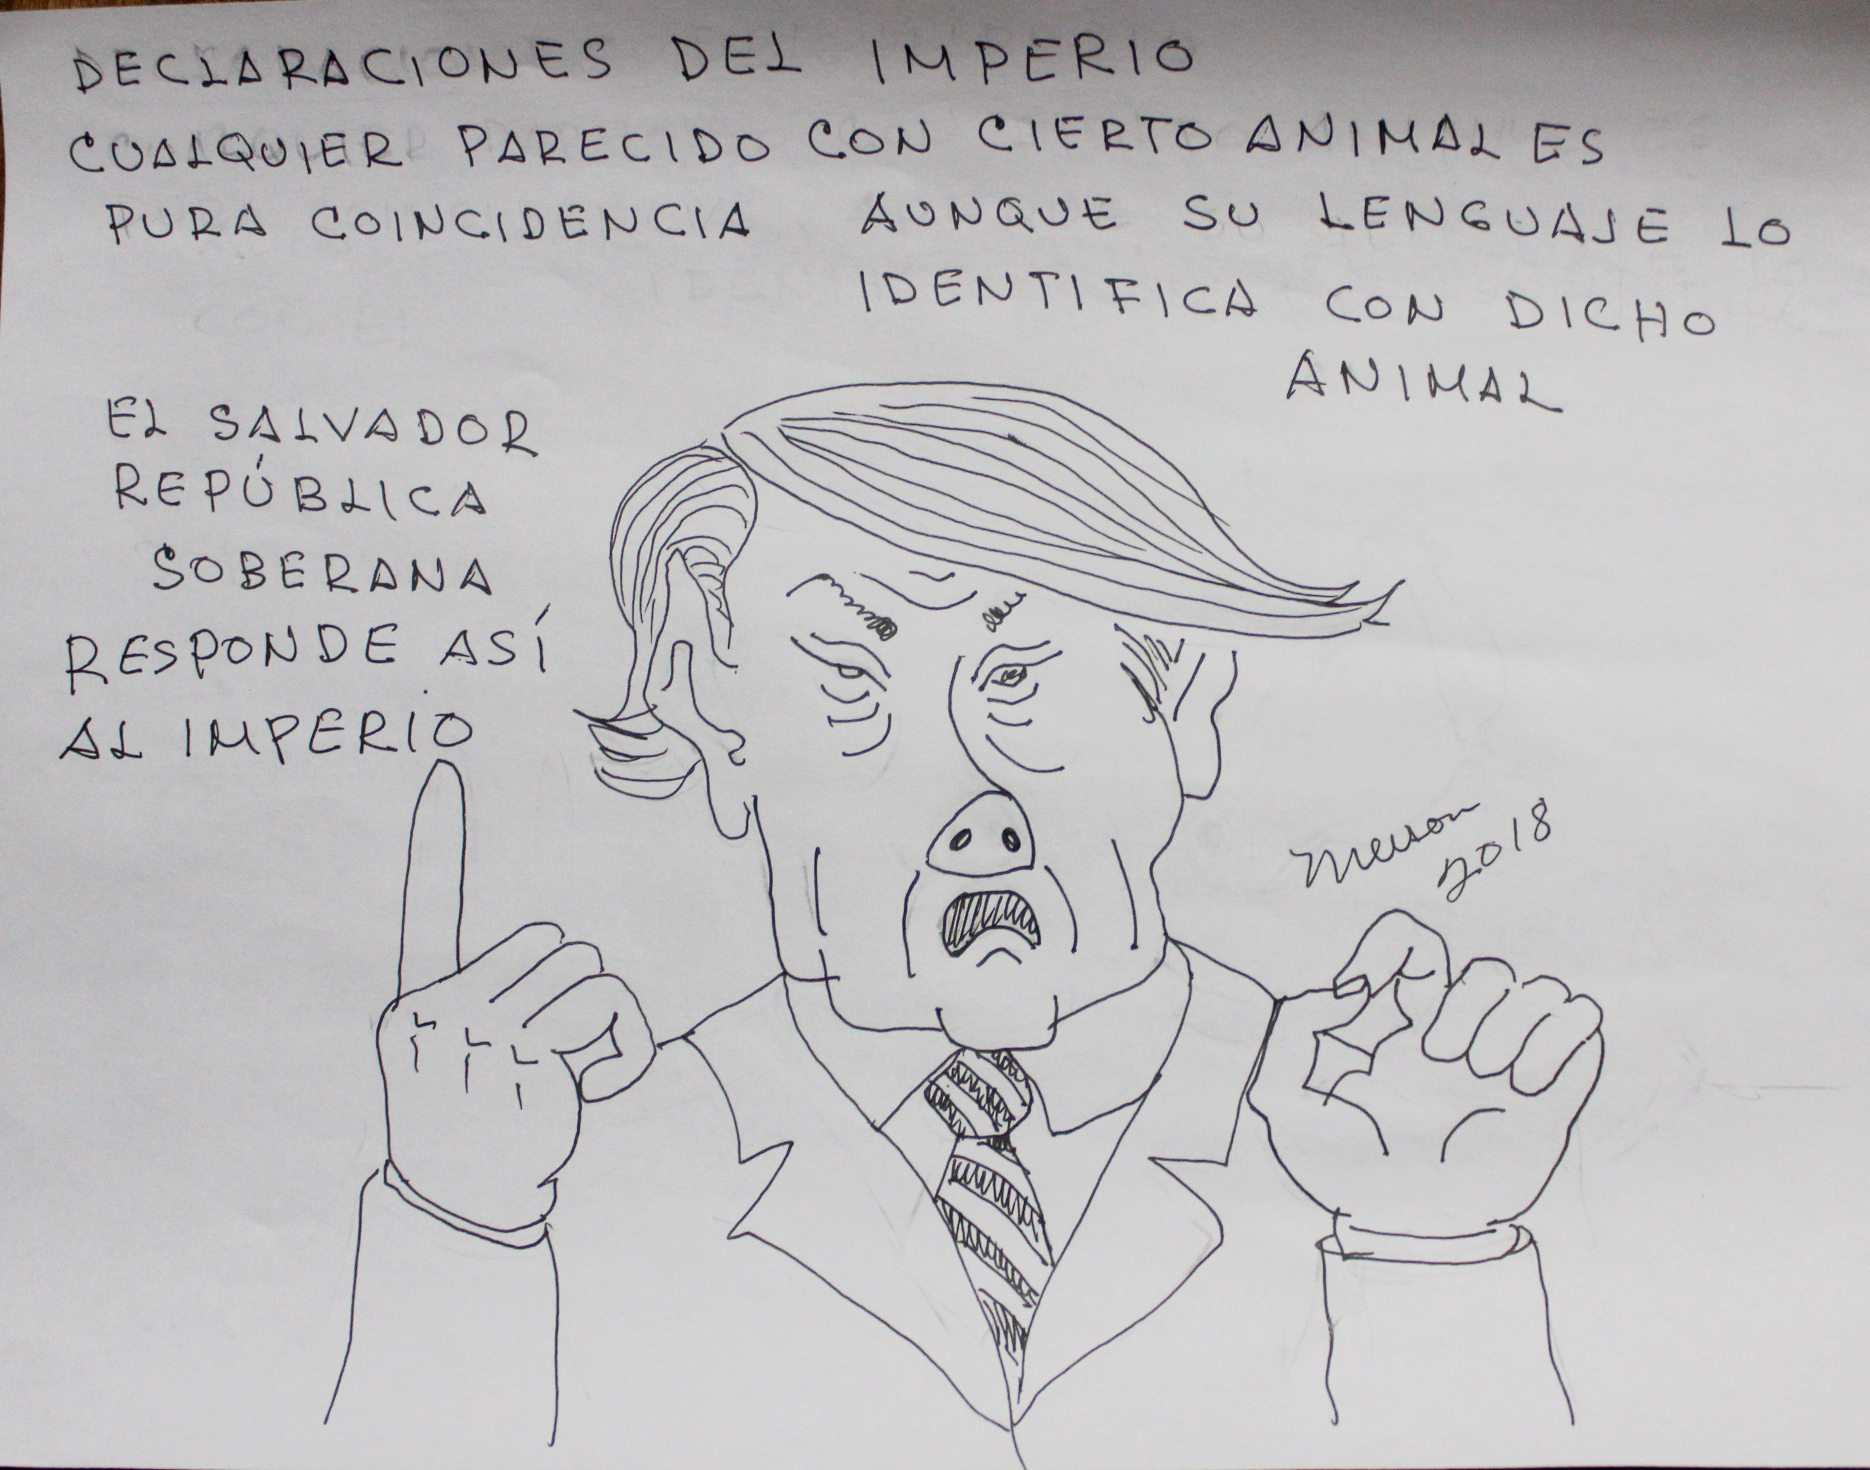 DECLARACIONES DEL IMPERIO
CUALQUIER PARECIDO CON CIERTO ANIMAL ES
PURA COINCIDENCIA AUNQUE SU LENGUAJE LO
IDENTIFICA CON DICHO
ANIMAL
EL SALVADOR
REPÚBLICA
SOBERANA
RESPONDE ASÍ
AL IMPERIO
2018